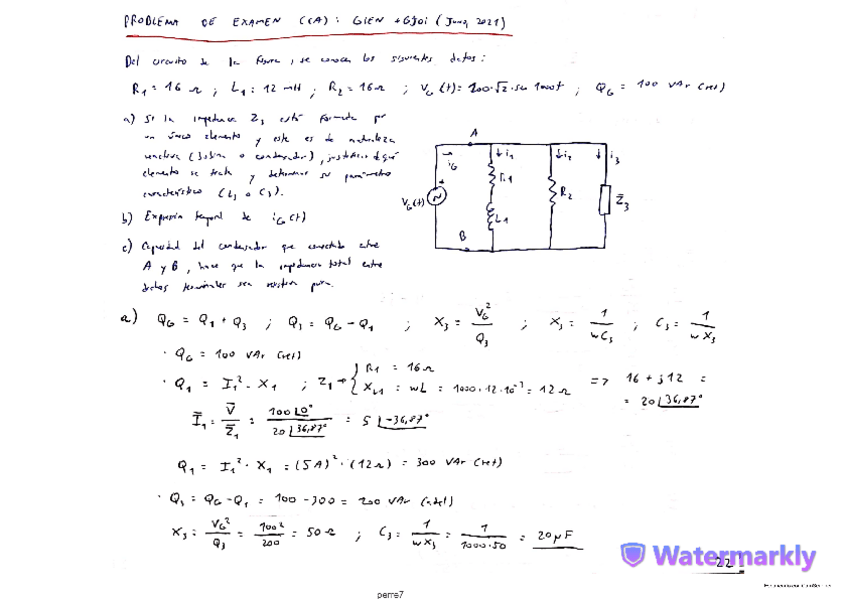 PROBLEMA DE EXAMEN (CA): GIEN + GJOI (Junio, 2021)
Del circuito de la figura, se conocen los siguientes datos:
R1 = 16 Ω ; L1 = 12 mH ; R2 = 16Ω ; VG(t) = 100·√2·sen 1000t ; QG = 100 VAr (ret)
a) Si la impedancia Z3 está formada por
un único elemento y este es de naturaleza
reactiva (bobina o condensador), justificar de qué
elemento se trata y determinar su parámetro
característico (L3 o C3).
b) Expresión temporal de iG(t)
c) Capacidad del condensador que conectado entre
A y B, hace que la impedancia total entre
dichos terminales sea resistiva pura.
A
iG
i1
i2
i3
R1
R2
Z̄3
VG(t)
L1
B
a) QG = Q1 + Q3 ; Q3 = QG - Q1 ; X3 = VG²/Q3 ; X3 = 1/wC3 ; C3 = 1/wX3
· QG = 100 VAr (ret)
· Q1 = I1² · X1 ; Z1 → { R1 = 16Ω
XL1 = wL = 1000·12·10⁻³ = 12Ω => 16 + j12 =
= 20 |36,87°
Ī1 = V̄/Z̄1 = 100|0°/20|36,87° = 5 |-36,87°
Q1 = I1² · X1 = (5A)² · (12Ω) = 300 VAr (ret)
· Q3 = QG - Q1 = 100 - 300 = 200 VAr (adel)
X3 = VG²/Q3 = 100²/200 = 50Ω ; C3 = 1/wX3 = 1/1000·50 = 20µF
Watermarkly
22
perre7